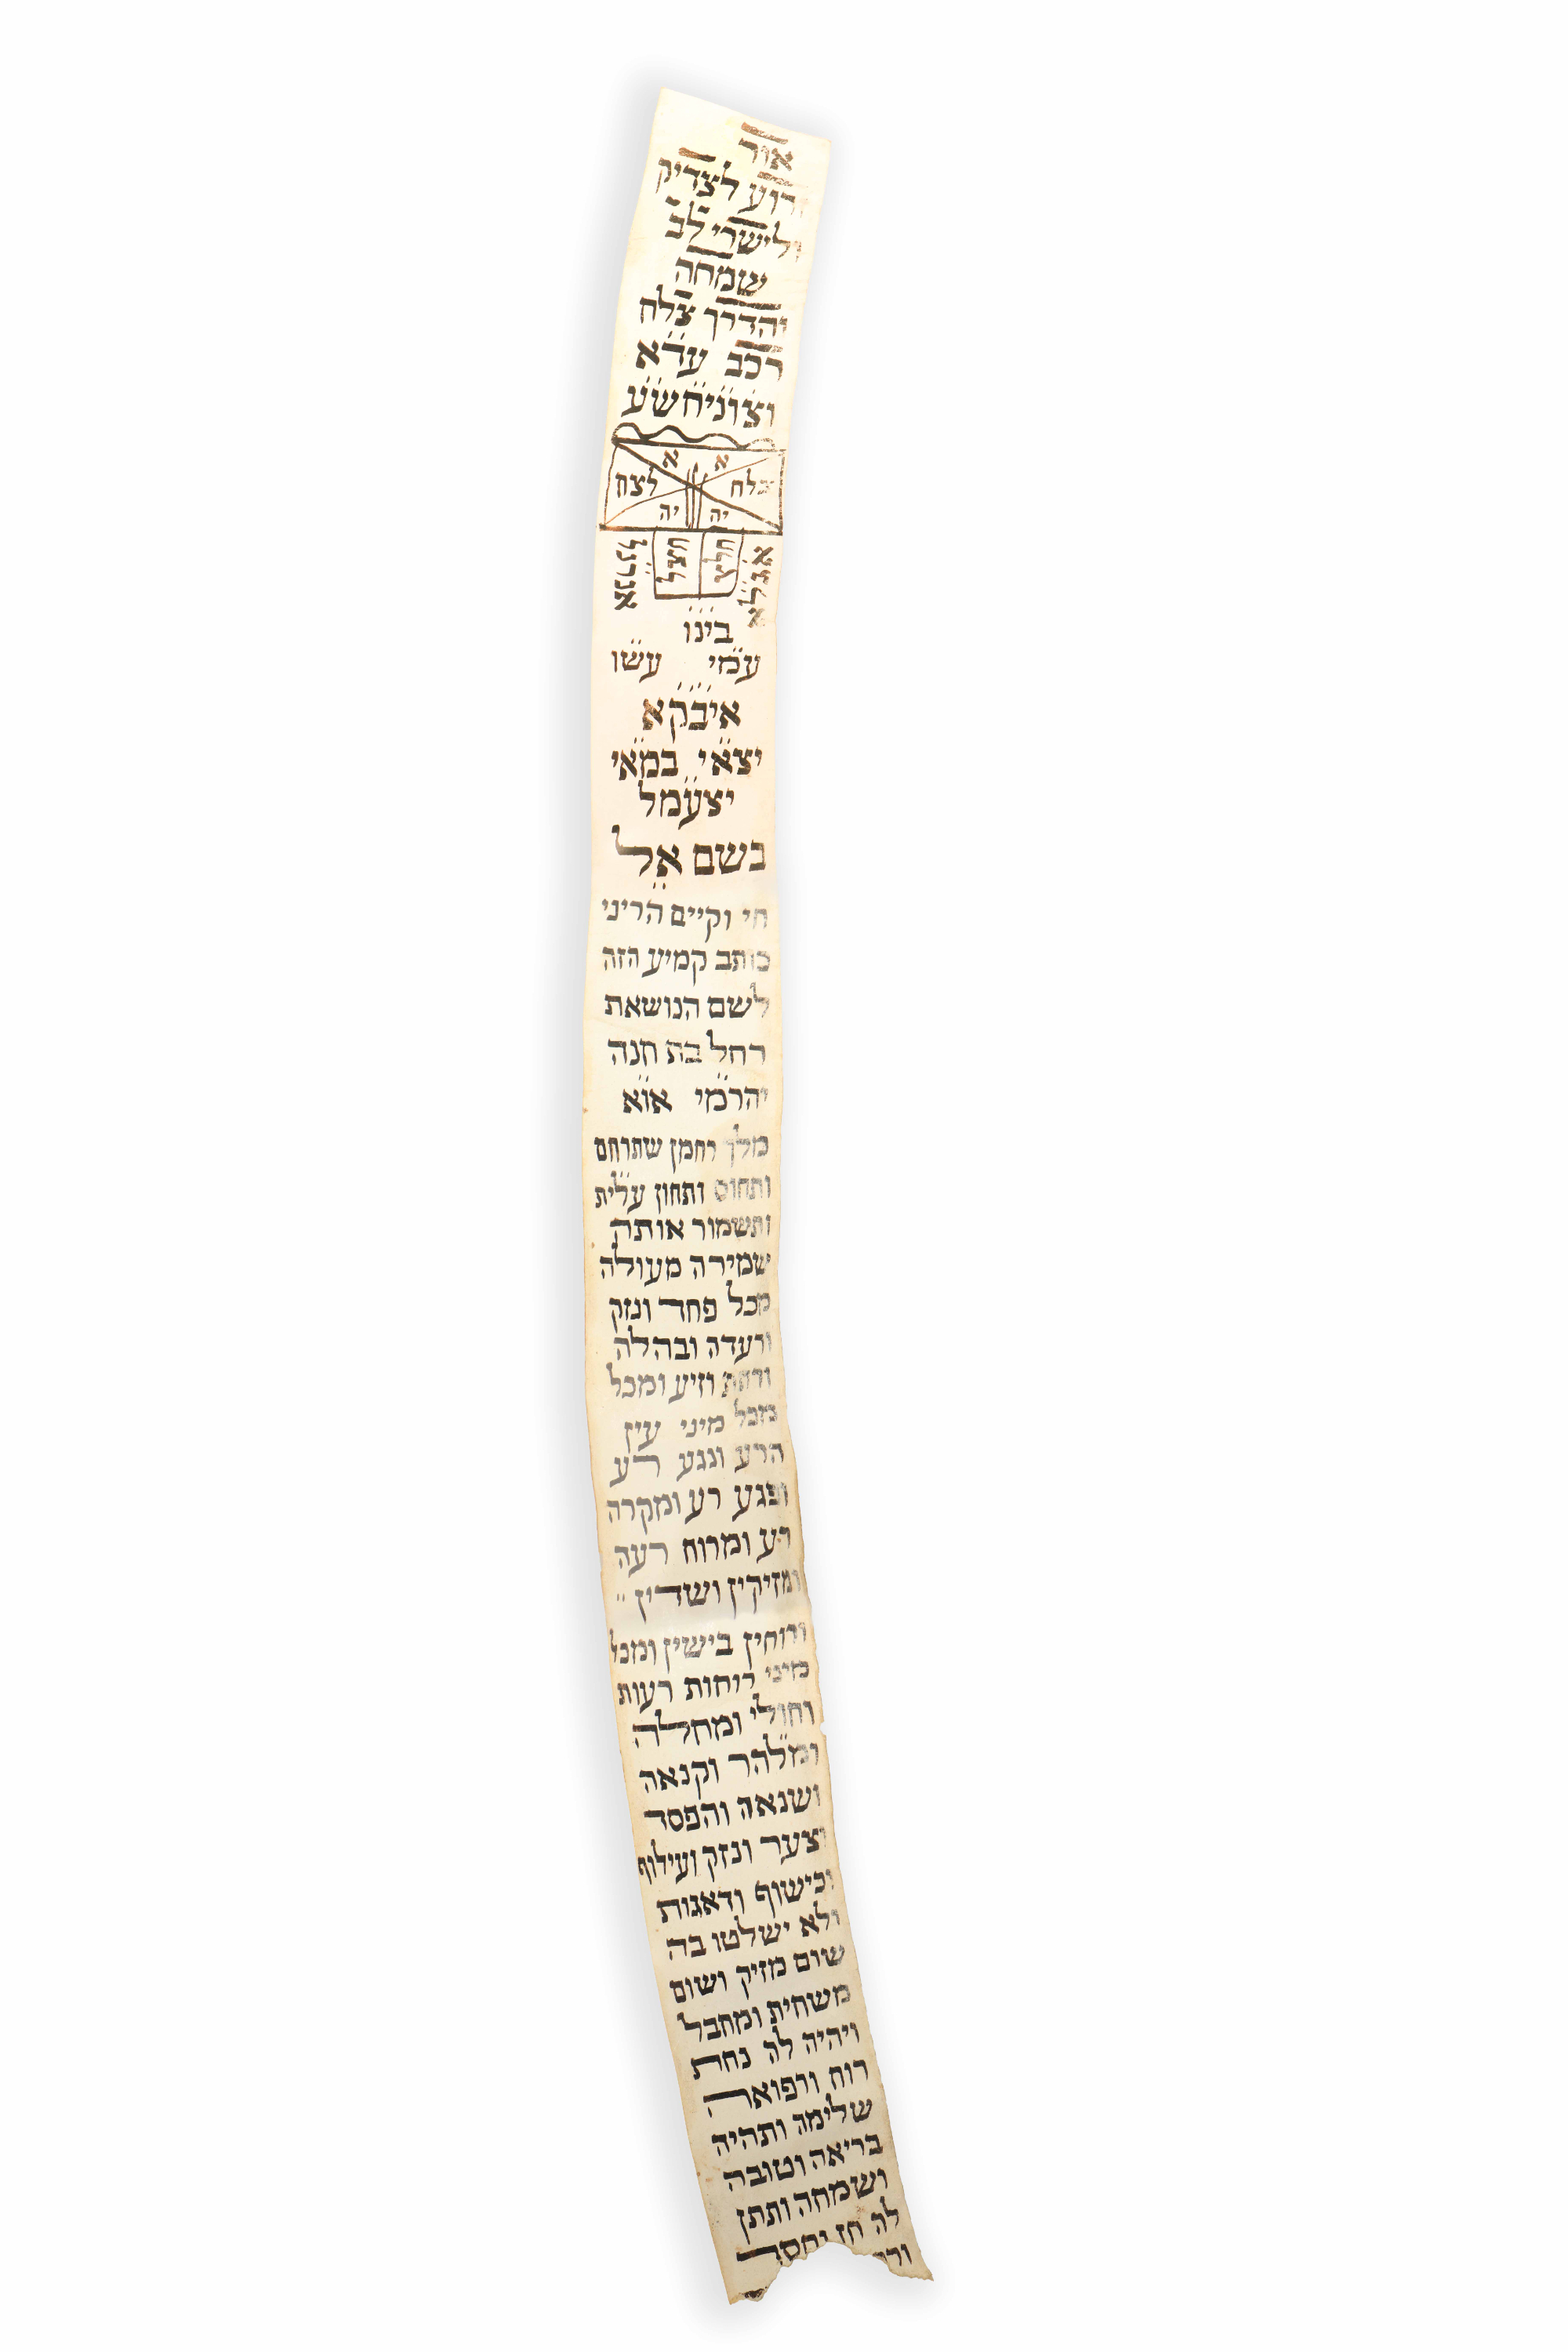 אור
זרוע לצדיק
ולישרי לב
שמחה
והדרך צלח
רכב עדא
וצוניחשע
א א
צלח לצח
יה יה
חלצ חצל
אגלא אנרנל
בינו
עמי עשו
איבקא
יצאי במאי
יצעמל
בשם אל
חי וקיים הריני
כותב קמיע הזה
לשם הנושאת
רחל בת חנה
יהרמי אוא
מלך רחמן שתרחם
ותחוס ותחון עלית
ותשמור אותה
שמירה מעולה
מכל פחד ונזק
ורעדה ובהלה
ורתת וזיע ומכל
מכל מיני עין
הרע ונגע רע
ופגע רע ומקרה
רע ומרוח רעה
ומזיקין ושדין
ורוחין בישין ומכל
מיני רוחות רעות
וחולי ומחלה
ומלהר וקנאה
ושנאה והפסד
וצער ונזק ועילוף
וכישוף ודאגות
ולא ישלטו בה
שום מזיק ושום
משחית ומחבל
ויהיה לה נחת
רוח ורפואה
שלימה ותהיה
בריאה וטובה
ושמחה ותתן
לה חן וחסד